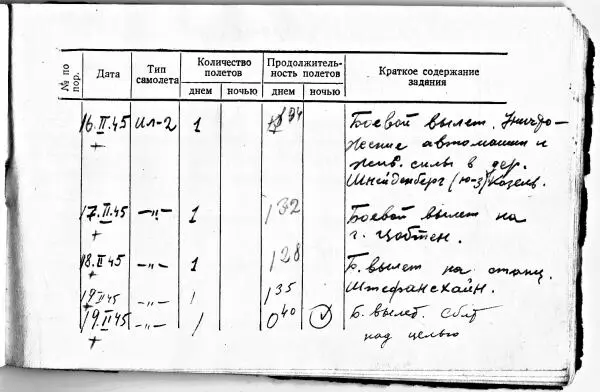 № по пор.
Дата
Тип самолета
Количество полетов
Продолжительность полетов
Краткое содержание задания
днем
ночью
днем
ночью
16.II.45 Ил-2 1 1 34 Боевой вылет. Уничто-
+ жение автомашин и
жив. силы в дер.
Шнейденберг (ю-з)
17.II.45 —〃— 1 1 32 Боевой вылет на
+ г. Цобтен.
18.II.45 —〃— 1 1 28 Б. вылет на станц.
+ Штефансхайн.
19.II.45 —〃— 1 1 35
19.II.45 —〃— 1 0 40 ✓ Б. вылет. Сбит
+ над целью